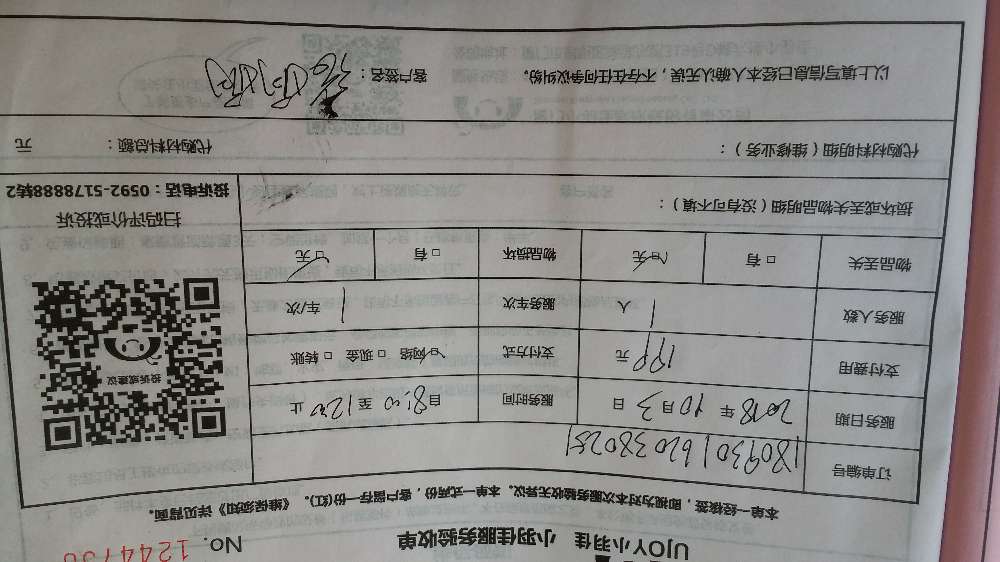 UJOY小羽佳 小羽佳服务验收单 No. 1244736
本单一经核签，即视为对本次服务验收无异议。本单一式两份，客户留存一份(红)。《维保须知》详见背面。
订单编号 180930162038025
服务日期 2018年10月3日 服务时间 自8:00至12:00止
支付费用 199元 支付方式 ☑网络 □现金 □转账
服务人数 1人 服务车次 1车/次
物品丢失 □有 ☑无 物品损坏 □有 ☑无
投诉或建议
损坏或丢失物品明细（没有可不填）：
扫码评价或投诉
投诉电话：0592-5178888转2
代购材料明细（维修业务）： 代购材料总额： 元
以上填写信息已经本人确认无误，不存在任何争议纠纷。 客户签名：